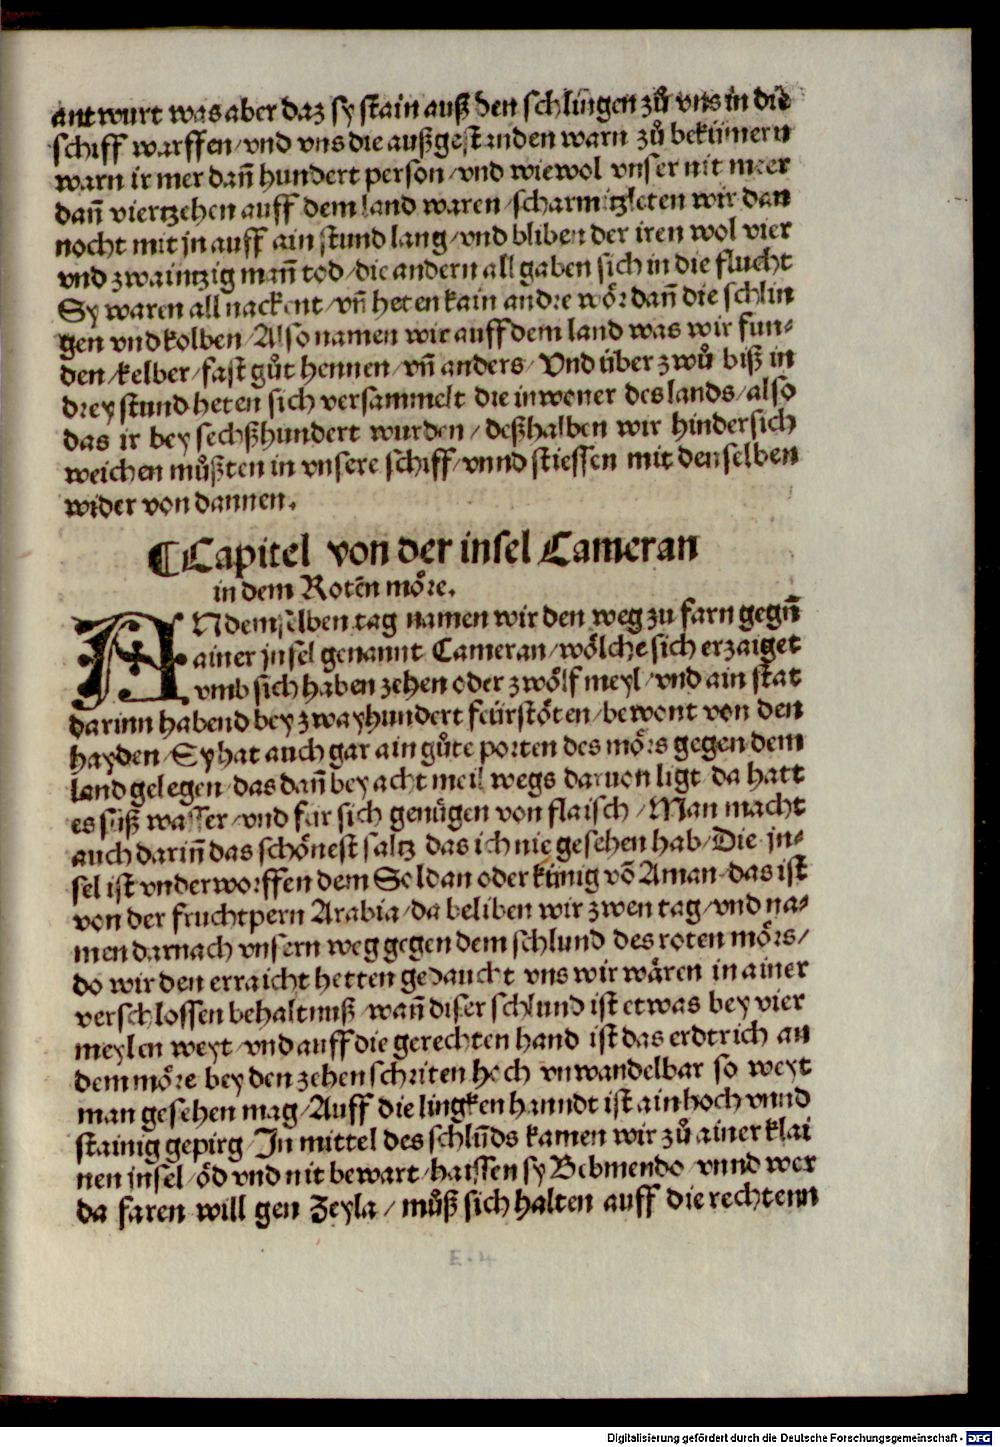 antwurt was aber daz sy stain auß den schlingen zů vns in die
schiff warffen / vnd vns die außgestanden warn zů bekümern
warn ir mer dan̄ hundert person / vnd wiewol vnser nit meer
dan̄ viertzehen auff dem land waren / scharmitzleten wir dan
nocht mit jn auff ain stund lang / vnd bliben der iren wol vier
vnd zwaintzig man̄ tod / die andern all gaben sich in die flucht
Sy waren all nackent / vn̄ heten kain andre wör dan̄ die schlin
gen vnd kolben / Also namen wir auff dem land was wir fun⸗
den / kelber / fast gůt hennen / vn̄ anders / Vnd über zwů biß in
drey stund heten sich versammelt die inwoner des lands / also
das ir bey sechßhundert wurden / deßhalben wir hindersich
weichen můßten in vnsere schiff / vnnd stiessen mit denselben
wider von dannen.
¶Capitel von der insel Cameran
in dem Rotēn möre.
ANdemselben tag namen wir den weg zu farn gegn̄
ainer jnsel genannt Cameran / wölche sich erzaiget
vmb sich haben zehen oder zwölf meyl / vnd ain stat
darinn habend bey zwayhundert feürstöten / bewont von den
hayden / Sy hat auch gar ain gůte porten des mörs gegen dem
land gelegen / das dan̄ bey acht meil wegs daruon ligt / da hatt
es süß wasser / vnd für sich genügen von flaisch / Man macht
auch darin̄ das schönest saltz das ich nie gesehen hab / Die jn⸗
sel ist vnderworffen dem Soldan oder künig vō Aman das ist
von der fruchtpern Arabia / da beliben wir zwen tag / vnd na⸗
men darnach vnsern weg gegen dem schlund des roten mörs /
do wir den erraicht hetten gedaucht vns wir wären in ainer
verschlossen behaltnuß / wan̄ diser schlund ist etwas bey vier
meylen weyt / vnd auff die gerechten hand ist das erdtrich an
dem möre bey den zehen schriten hoch vnwandelbar so weyt
man gesehen mag / Auff die lingken hanndt ist ain hoch vnnd
stainig gepirg / In mittel des schlūds kamen wir zů ainer klai
nen jnsel / öd vnd nit bewart / haissen sy Bebmendo / vnnd wer
da faren will gen Zeyla / můß sich halten auff die rechtenn
E.4
Digitalisierung gefördert durch die Deutsche Forschungsgemeinschaft - DFG